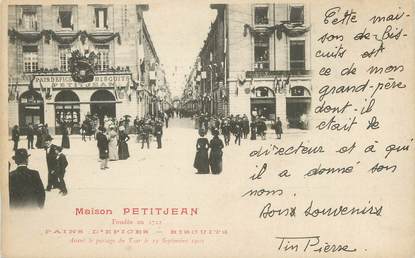 PAINS D'EPICES BISCUITS
PETITJEAN
Maison PETITJEAN
Fondée en 1722
PAINS D'EPICES — BISCUITS
Avant le passage du Tsar le 19 Septembre 1901
Cette mai-
son de bis-
cuits est
ce de mon
grand-père
dont il
était le
directeur et à qui
il a donné son
nom.
Bons souvenirs
Pierre